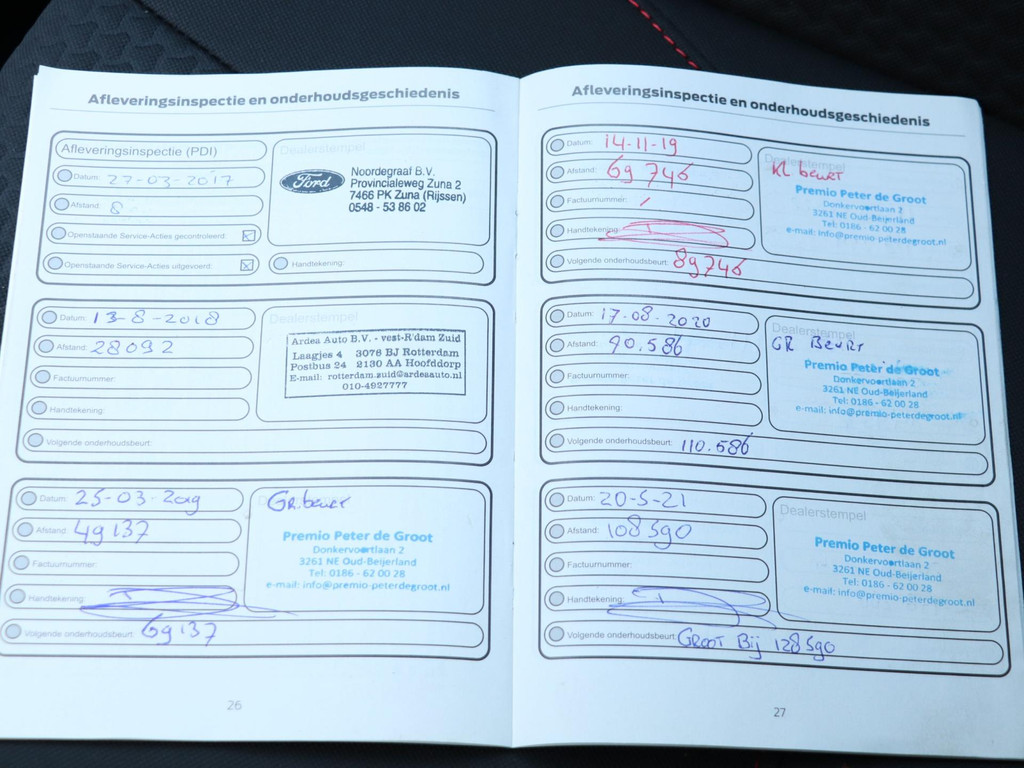 Afleveringsinspectie en onderhoudsgeschiedenis
Afleveringsinspectie (PDI)
Datum: 27-03-2017
Afstand: 8
Openstaande Service-Acties gecontroleerd:
Openstaande Service-Acties uitgevoerd:
Dealerstempel
Ford
Noordegraaf B.V.
Provincialeweg Zuna 2
7466 PK Zuna (Rijssen)
0548 - 53 86 02
Handtekening:
Datum: 13-8-2018
Afstand: 28092
Factuurnummer:
Handtekening:
Volgende onderhoudsbeurt:
Dealerstempel
Ardea Auto B.V. - vest-R'dam Zuid
Laagjes 4 3078 BJ Rotterdam
Postbus 24 2130 AA Hoofddorp
E-mail: rotterdam.zuid@ardeaauto.nl
010-4927777
Datum: 25-03-2019
Afstand: 49137
Factuurnummer:
Handtekening:
Volgende onderhoudsbeurt: 69137
GR. beurt
Premio Peter de Groot
Donkervoortlaan 2
3261 NE Oud-Beijerland
Tel: 0186 - 62 00 28
e-mail: info@premio-peterdegroot.nl
26
Afleveringsinspectie en onderhoudsgeschiedenis
Datum: 14-11-19
Afstand: 69746
Factuurnummer: /
Handtekening:
Volgende onderhoudsbeurt: 89746
Dealerstempel
KL beurt
Premio Peter de Groot
Donkervoortlaan 2
3261 NE Oud-Beijerland
Tel: 0186 - 62 00 28
e-mail: info@premio-peterdegroot.nl
Datum: 17-08-2020
Afstand: 90.586
Factuurnummer:
Handtekening:
Volgende onderhoudsbeurt: 110.586
Dealerstempel
GR BEURT
Premio Peter de Groot
Donkervoortlaan 2
3261 NE Oud-Beijerland
Tel: 0186 - 62 00 28
e-mail: info@premio-peterdegroot.nl
Datum: 20-5-21
Afstand: 108590
Factuurnummer:
Handtekening:
Volgende onderhoudsbeurt: GROOT Bij 128590
Dealerstempel
Premio Peter de Groot
Donkervoortlaan 2
3261 NE Oud-Beijerland
Tel: 0186 - 62 00 28
e-mail: info@premio-peterdegroot.nl
27